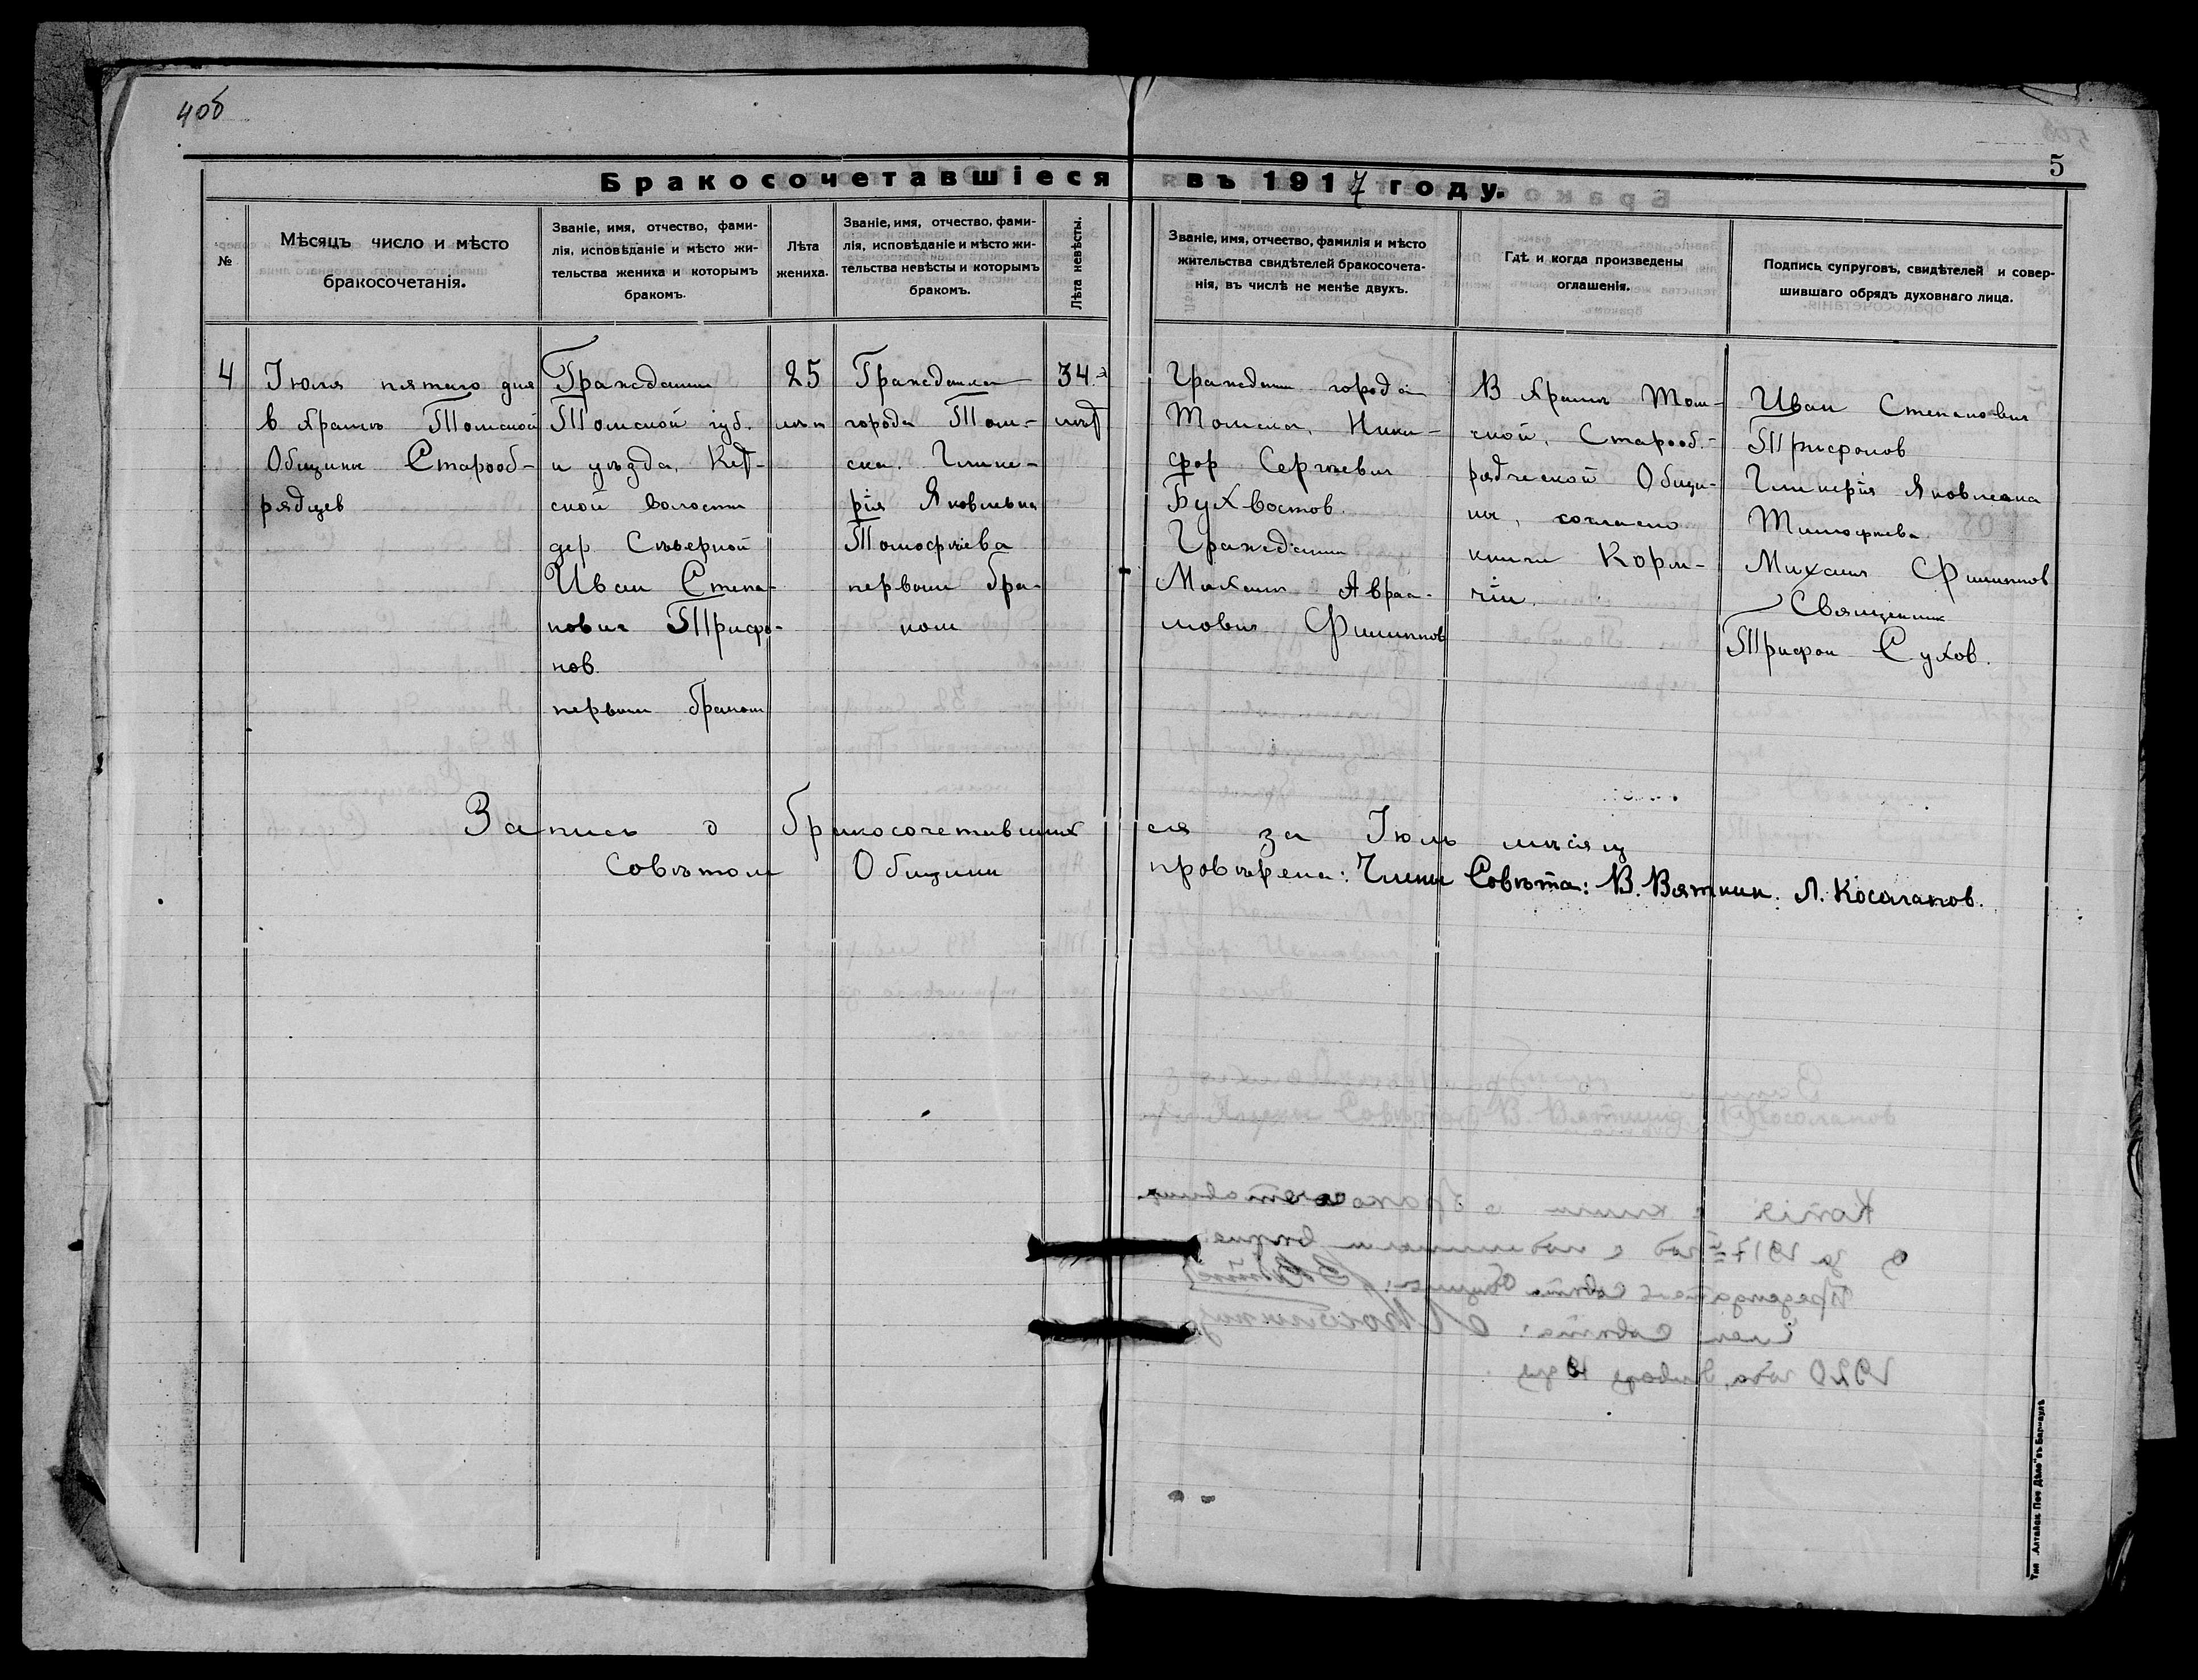 4об
5
Бракосочетавшіеся въ 1917 году.
№
Мѣсяцъ число и мѣсто
бракосочетанія.
Званіе, имя, отчество, фами-
лія, исповѣданіе и мѣсто жи-
тельства жениха и которымъ
бракомъ.
Лѣта
жениха.
Званіе, имя, отчество, фами-
лія, исповѣданіе и мѣсто жи-
тельства невѣсты и которымъ
бракомъ.
Лѣта невѣсты.
Званіе, имя, отчество, фамилія и мѣсто
жительства свидѣтелей бракосочета-
нія, въ числѣ не менѣе двухъ.
Гдѣ и когда произведены
оглашенія.
Подпись супруговъ, свидѣтелей и совер-
шившаго обрядъ духовнаго лица.
4
Іюля пятаго дня
в храмѣ Томской
Общины Старооб-
рядцев
Гражданин
Томской губ.
и уѣзда,
ской волости
дер. Сѣверной
Иван Степа-
нович Трифо-
нов.
первым браком
25
лѣт
Гражданка
города Том-
ска. Глике-
рія Яковлевна
Тимофѣева
первым бра-
ком
34
лѣт
Гражданин города
Томска, Ники-
фор Сергѣевич
Бухвостов.
Гражданин
Михаил Авраа-
мович Филиппов
В храмѣ Том-
ской, Старооб-
рядческой Общи-
ны, согласно
книги Корм-
чіи.
Иван Степанович
Трифонов
Гликерія Яковлевна
Тимофѣева
Михаил Филиппов
Священник
Трифон Сухов.
Запись о бракосочетавших ся за Іюль мѣсяц
Совѣтом Общины провѣрена: Члены Совѣта: В. Вяткин. Л. Косолапов.
Тип. „Алтайск. Печ. Дѣло" въ Барнаулѣ